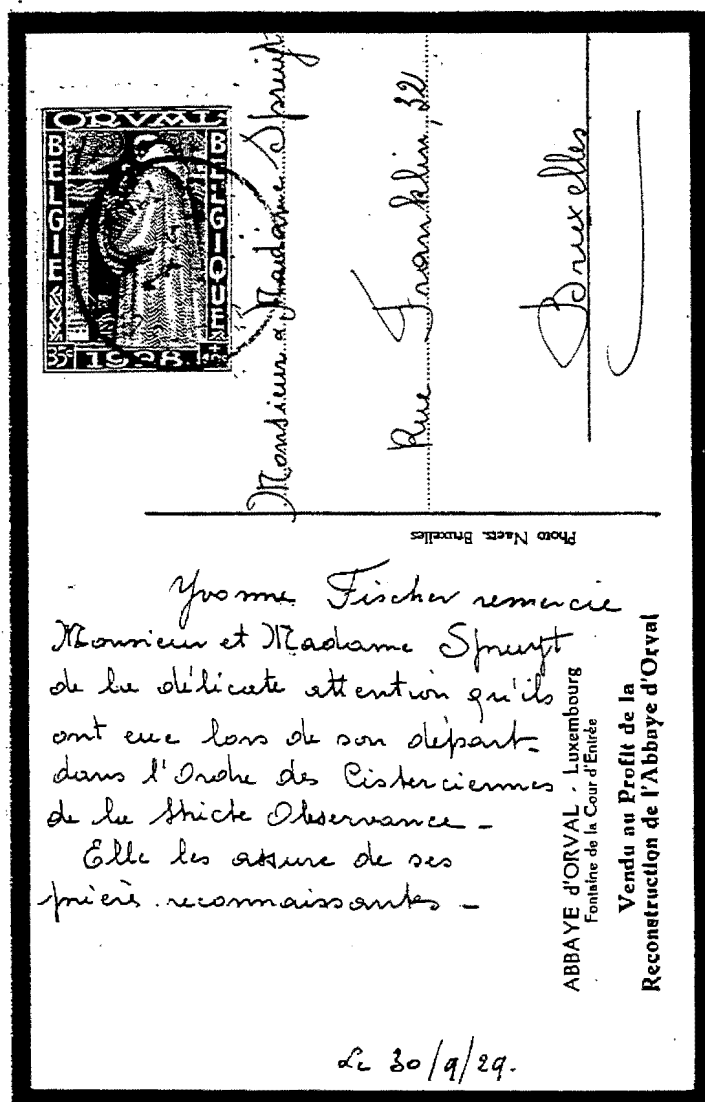 ORVAL
BELGIE
BELGIQUE
35c
1928
Monsieur & Madame Spruyt
Rue Franklin, 32
Bruxelles
Photo Naets. Bruxelles
Yvonne Fischer remercie
Monsieur et Madame Spruyt
de la délicate attention qu'ils
ont eue lors de son départ
dans l'Ordre des Cisterciennes
de la Stricte Observance -
Elle les assure de ses
prières reconnaissantes -
Le 30/9/29.
ABBAYE d'ORVAL - Luxembourg
Fontaine de la Cour d'Entrée
Vendu au Profit de la
Reconstruction de l'Abbaye d'Orval